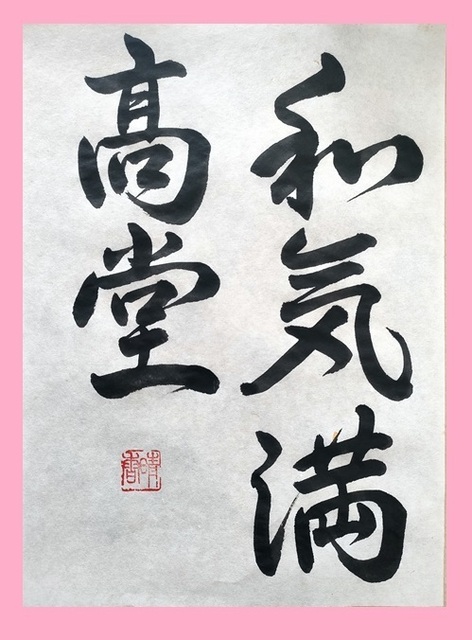 和気満
高堂